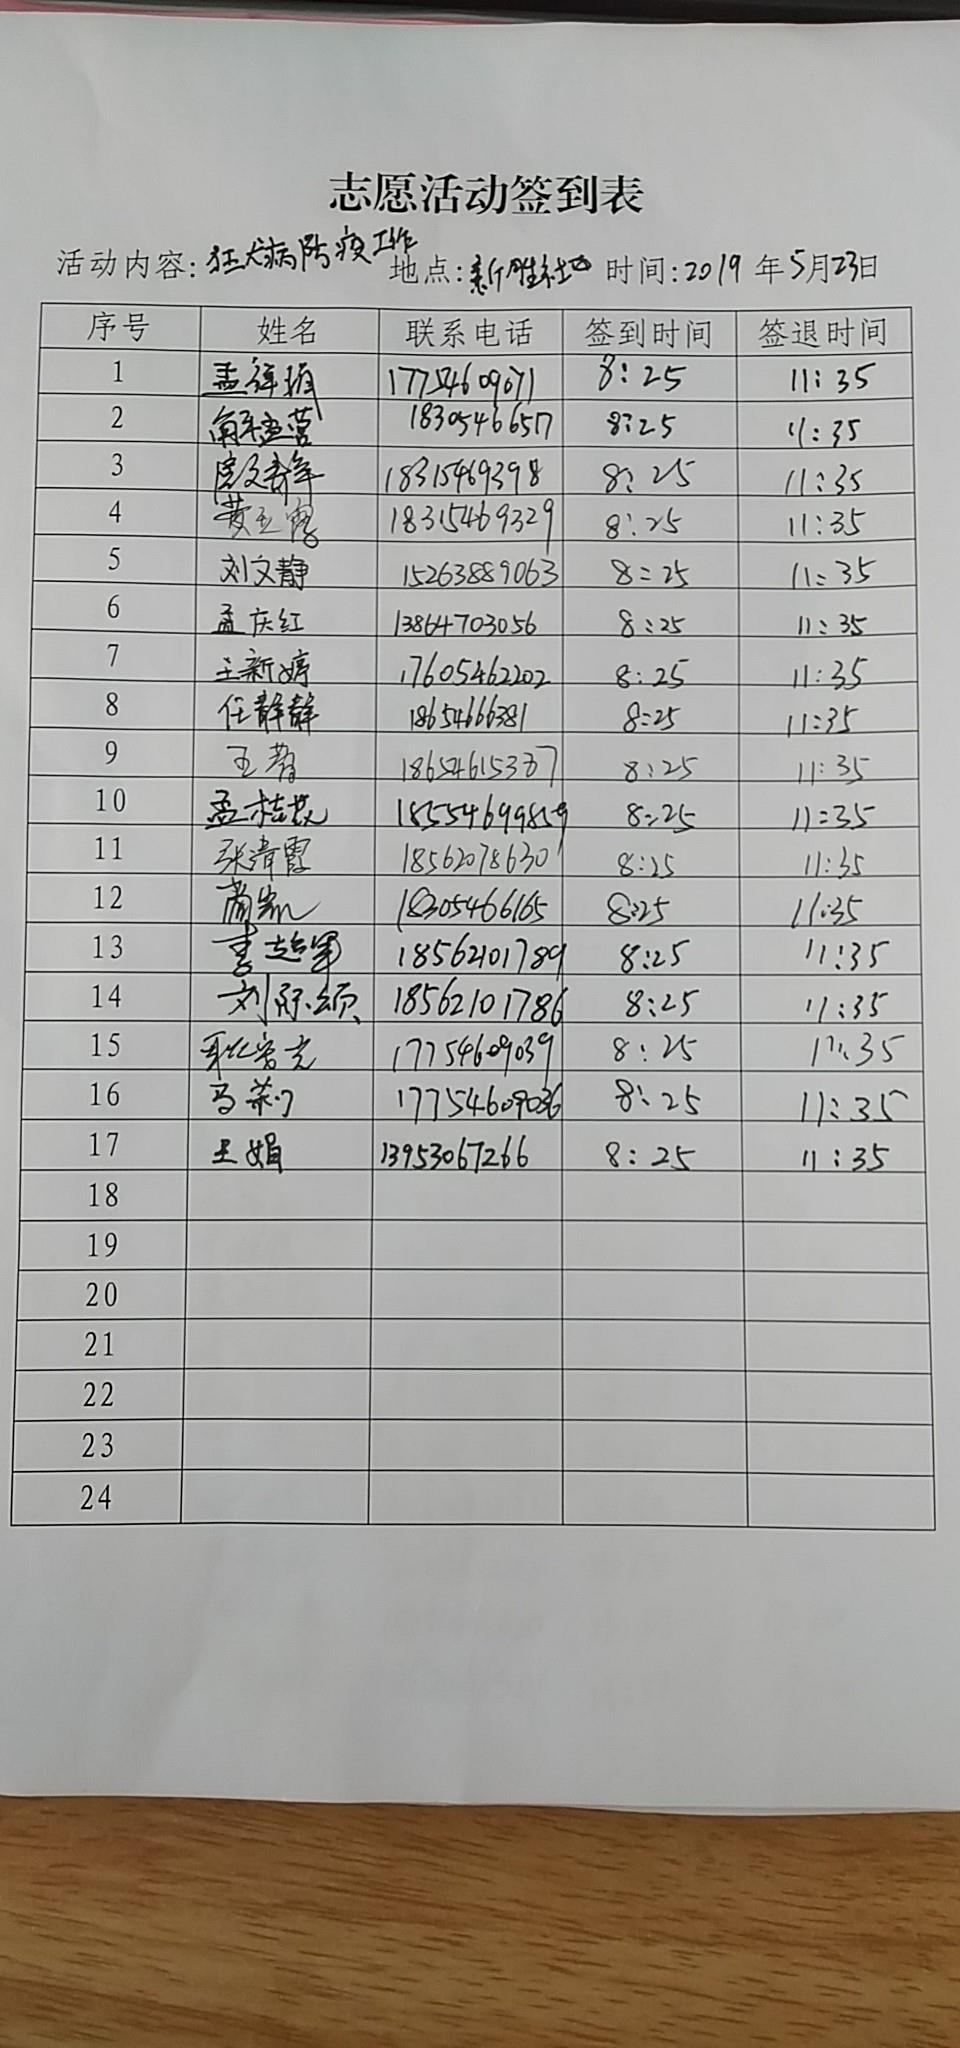 志愿活动签到表
活动内容: 狂犬病防疫工作 地点: 新胜社区 时间: 2019 年 5月23日
序号 姓名 联系电话 签到时间 签退时间
1 17754609071 8:25 11:35
2 8:25 11:35
3 18315469398 8:25 11:35
4 18315469329 8:25 11:35
5 刘文静 15263889063 8:25 11:35
6 孟庆红 13864703056 8:25 11:35
7 王新婷 17605462202 8:25 11:35
8 任静静 18654666381 8:25 11:35
9 18654615337 8:25 11:35
10 18554699859 8:25 11:35
11 张清霞 18562078630 8:25 11:35
12 18305466165 8:25 11:35
13 李超军 18562101789 8:25 11:35
14 18562101786 8:25 11:35
15 17754609039 8:25 11:35
16 马莉 17754609036 8:25 11:35
17 王娟 13953067266 8:25 11:35
18
19
20
21
22
23
24